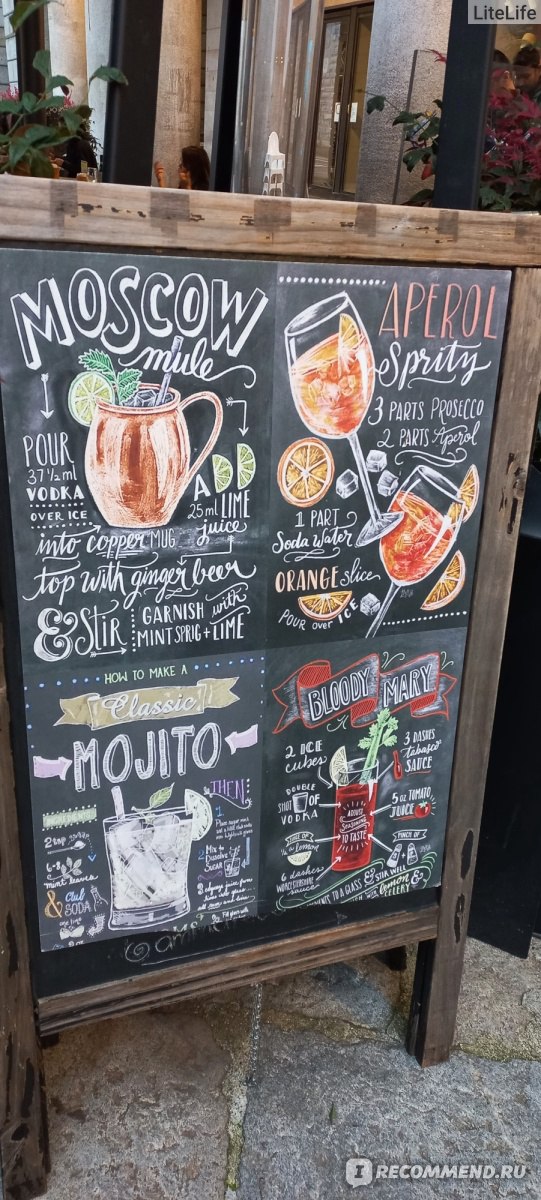 LiteLife
MOSCOW
mule
POUR
37 ½ ml
VODKA
OVER ICE
into copper MUG
A
25 ml LIME
juice
top with ginger beer
& STIR
GARNISH with
MINT SPRIG + LIME
APEROL
Spritz
3 PARTS PROSECCO
2 PARTS Aperol
1 PART
Soda Water
ORANGE slice
POUR over ICE
HOW TO MAKE A
Classic
MOJITO
2 tsp
6-8
mint leaves
& Club
SODA
one lime
THEN
Mix to
Dissolve
Sugar
BLOODY MARY
2 ICE
cubes
3 DASHES
tabasco
SAUCE
DOUBLE
SHOT OF
VODKA
5 oz TOMATO
JUICE
ADJUST
SEASONING
TO TASTE
JUICE OF
½ a lemon
PINCH OF
6 dashes
WORCESTERSHIRE
sauce
TO A GLASS & STIR WELL
lemon &
CELERY
IRECOMMEND.RU